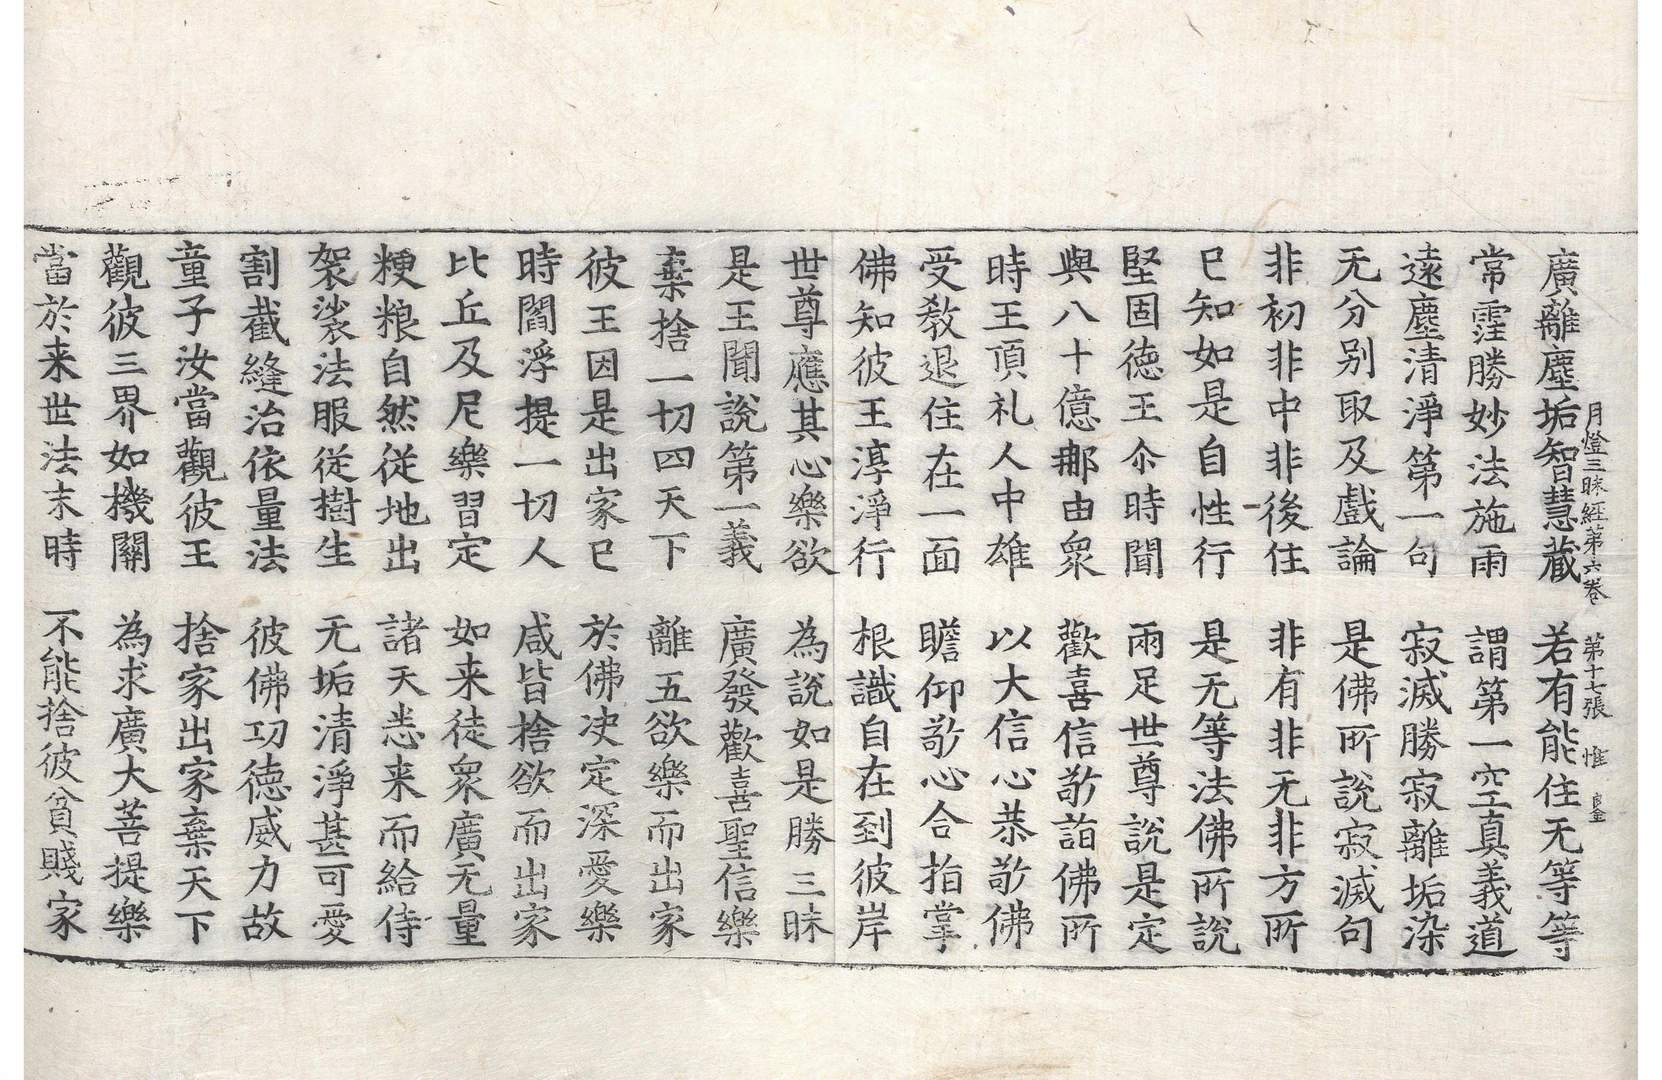 月燈三昧經第六卷 第十七張 惟
廣離塵垢智慧藏 若有能住无等等
常霔勝妙法施雨 謂第一空真義道
遠塵清淨第一句 寂滅勝寂離垢染
无分别取及戲論 是佛所說寂滅句
非初非中非後住 非有非无非方所
已知如是自性行 是无等法佛所說
堅固德王尒時聞 兩足世尊說是定
與八十億那由眾 歡喜信敬詣佛所
時王頂礼人中雄 以大信心恭敬佛
受教退住在一面 瞻仰敬心合指掌
佛知彼王淳淨行 根識自在到彼岸
世尊應其心樂欲 為說如是勝三昧
是王聞說第一義 廣發歡喜聖信樂
棄捨一切四天下 離五欲樂而出家
彼王因是出家已 於佛决定深愛樂
時閻浮提一切人 咸皆捨欲而出家
比丘及尼樂習定 如来徒眾廣无量
粳粮自然従地出 諸天悉来而給侍
袈裟法服従樹生 无垢清淨甚可愛
割截縫治依量法 彼佛功德威力故
童子汝當觀彼王 捨家出家棄天下
觀彼三界如機關 為求廣大菩提樂
當於来世法末時 不能捨彼貧賤家